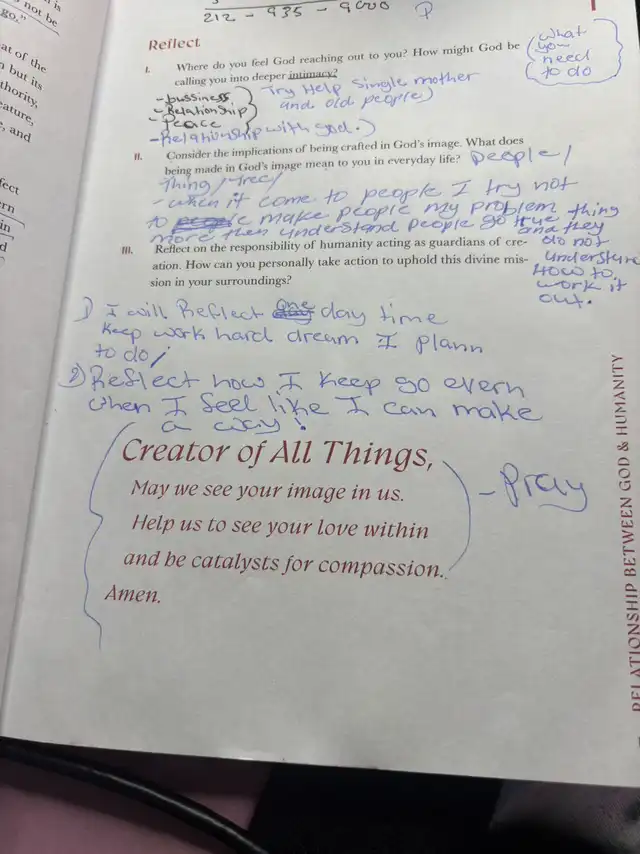 not be
go."
at of the
n but its
thority,
eature,
e, and
fect
ern
in
d
212 - 935 - 9000
P
Reflect
I. Where do you feel God reaching out to you? How might God be
calling you into deeper intimacy?
what
you
need
to do
- bussiness
- Relationship
- Peace
- Relationship with god.)
Try Help single mother
and old people)
II. Consider the implications of being crafted in God's image. What does
being made in God's image mean to you in everyday life?
people/
Thing/Tree/
- when it come to people I try not
to make people my problem thing
more then understand people go true
and they
do not
understure
How to
work it
out.
III. Reflect on the responsibility of humanity acting as guardians of cre-
ation. How can you personally take action to uphold this divine mis-
sion in your surroundings?
1) I will Reflect one day time
keep work hard dream I plann
to do/
2) Reflect how I keep go evern
when I feel like I can make
a way!
Creator of All Things,
May we see your image in us.
Help us to see your love within
and be catalysts for compassion.
Amen.
- Pray
RELATIONSHIP BETWEEN GOD & HUMANITY